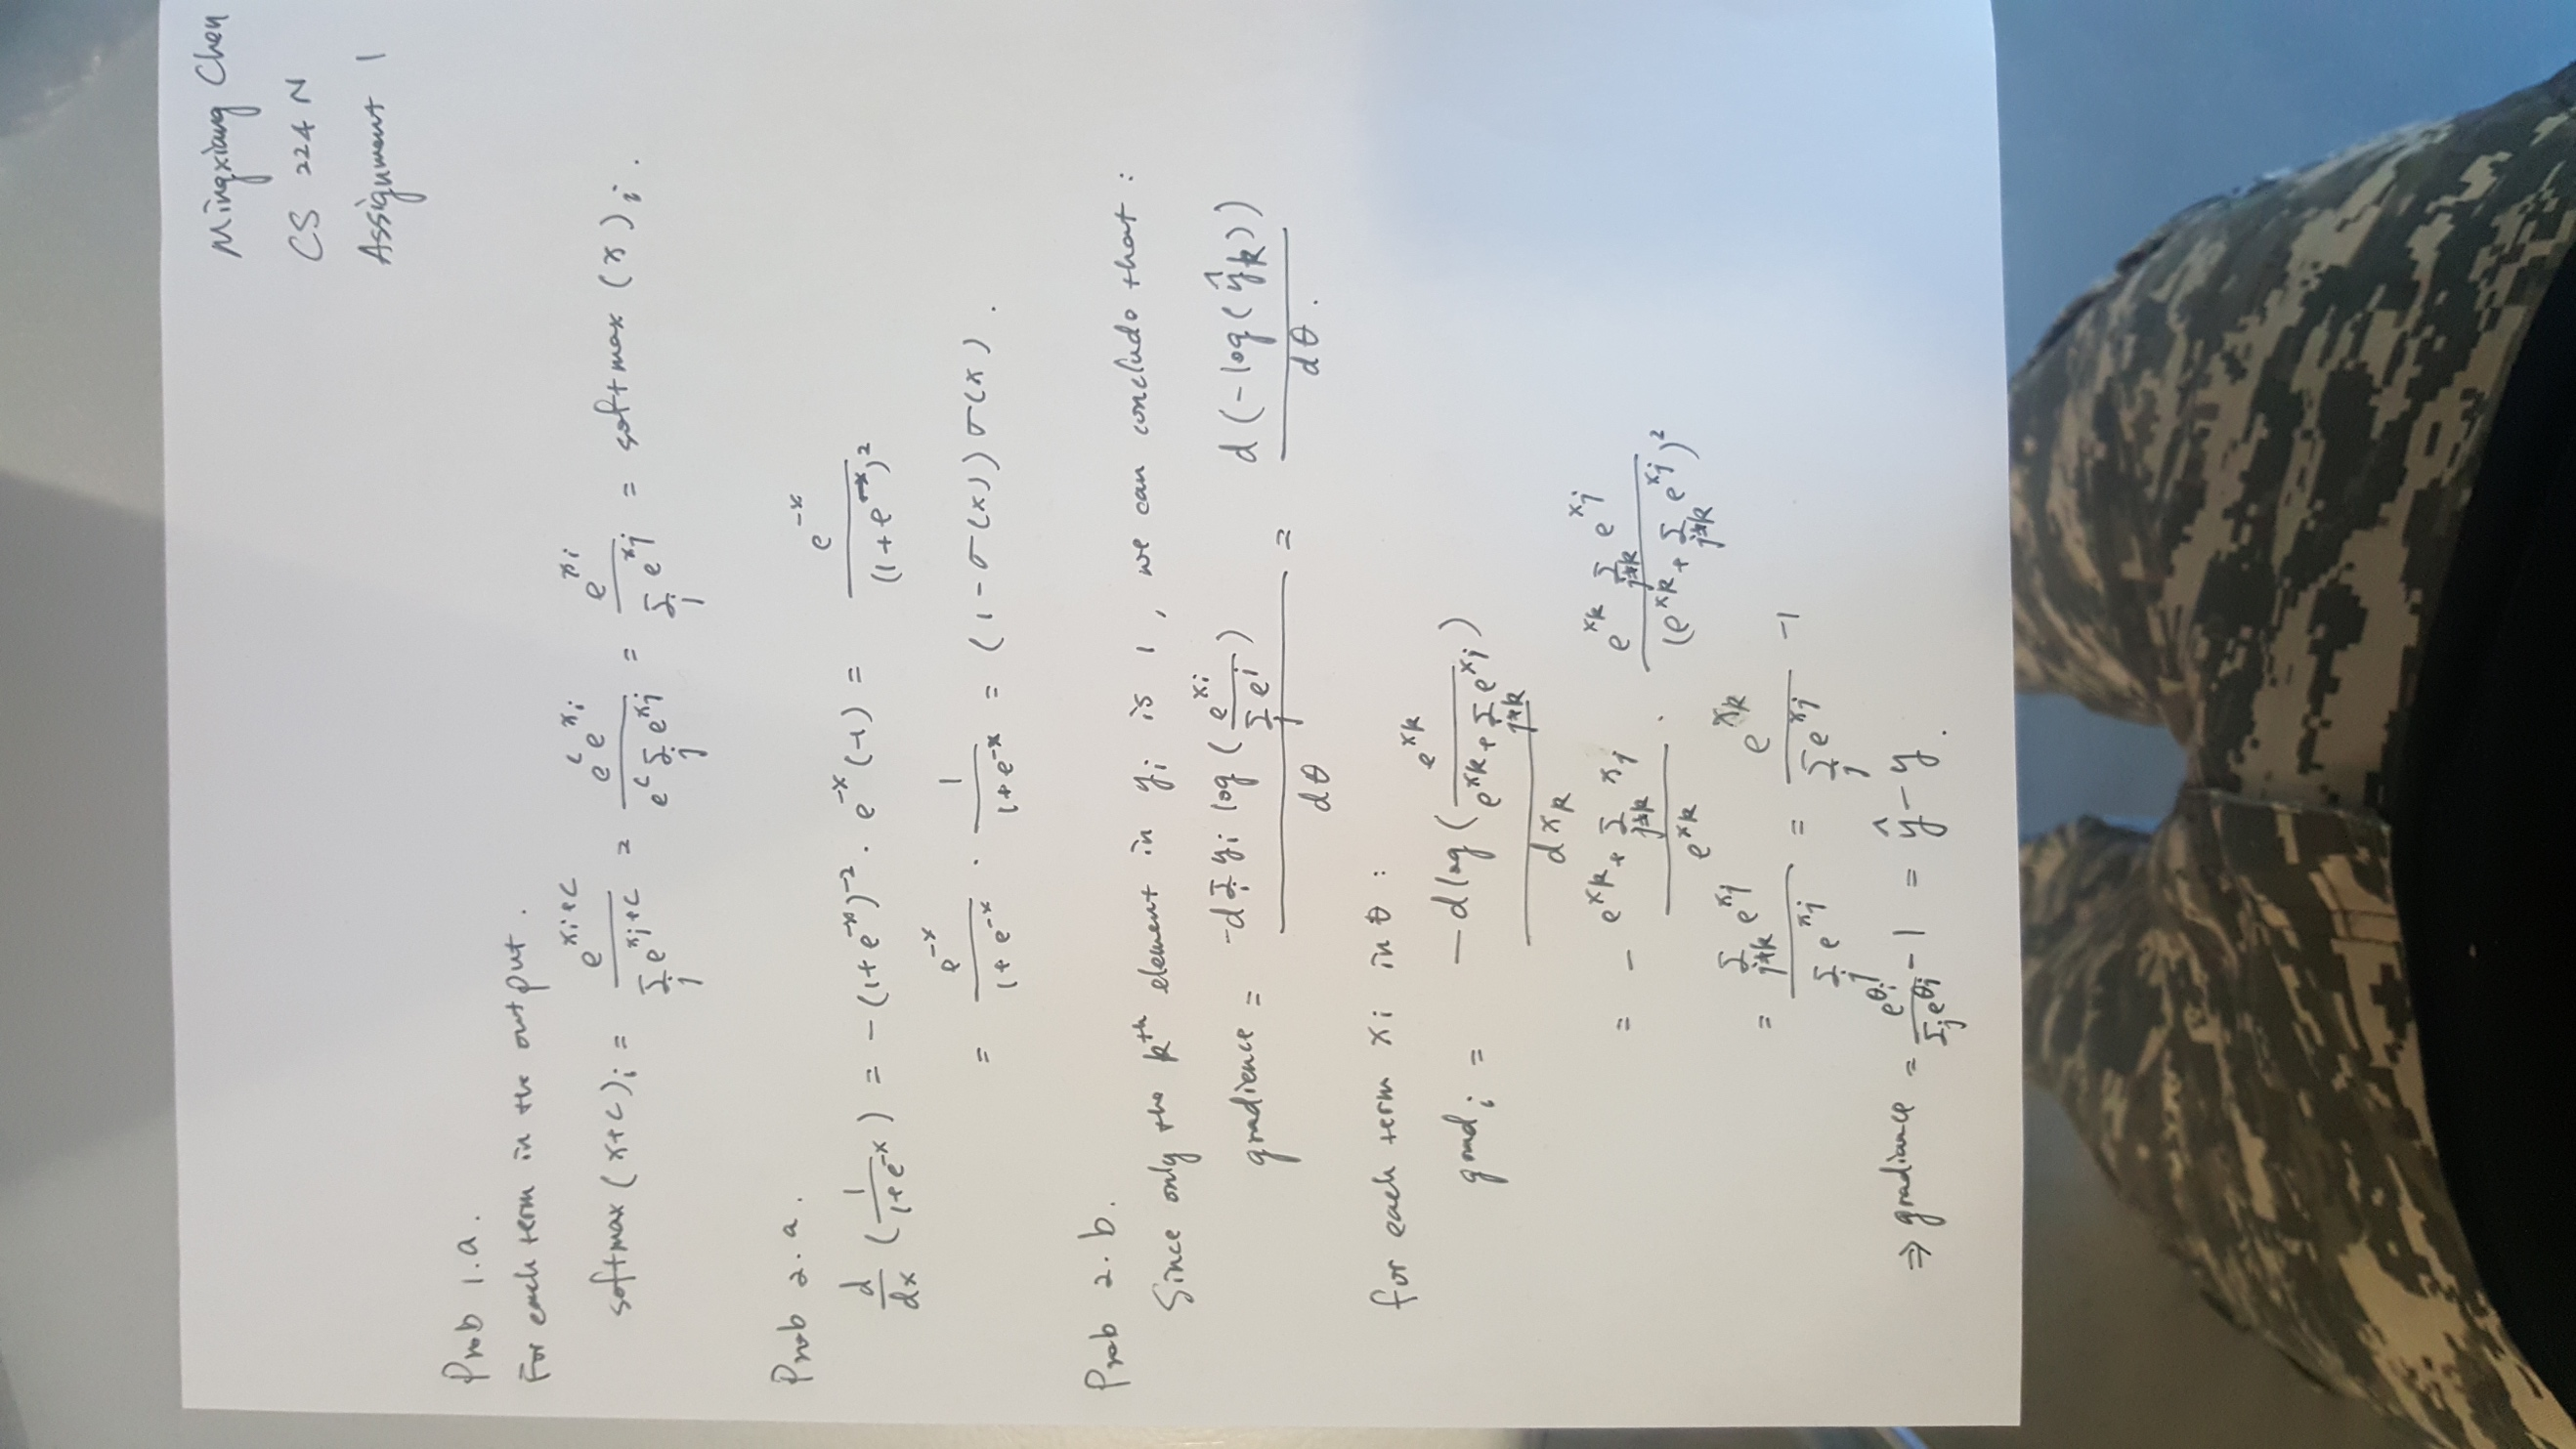 Mingxiang Chen
CS 224N
Assignment 1
Prob 1.a.
For each term in the output.
softmax (x+c)_i = \frac{e^{x_i+c}}{\sum_j e^{x_j+c}} = \frac{e^c e^{x_i}}{e^c \sum_j e^{x_j}} = \frac{e^{x_i}}{\sum_j e^{x_j}} = softmax (x)_i.
Prob 2.a.
\frac{d}{dx} (\frac{1}{1+e^{-x}}) = -(1+e^{-x})^{-2} · e^{-x} (-1) = \frac{e^{-x}}{(1+e^{-x})^2}
= \frac{e^{-x}}{1+e^{-x}} · \frac{1}{1+e^{-x}} = (1-σ(x)) σ(x).
Prob 2.b.
Since only the k^{th} element in y_i is 1, we can conclude that:
gradience = \frac{-d \sum_i y_i log(\frac{e^{x_i}}{\sum_j e^j})}{dθ} = \frac{d(-log(\hat{y}_k))}{dθ}.
for each term x_i in θ:
grad_i = \frac{-d log(\frac{e^{x_k}}{e^{x_k} + \sum_{j≠k} e^{x_j}})}{dx_k}
= - \frac{e^{x_k} + \sum_{j≠k} x_j}{e^{x_k}} · \frac{e^{x_k} \sum_{j≠k} e^{x_j}}{(e^{x_k} + \sum_{j≠k} e^{x_j})^2}
= \frac{\sum_{j≠k} e^{x_j}}{\sum_j e^{x_j}} = \frac{e^{x_k}}{\sum_j e^{x_j}} -1
⇒ gradiance = \frac{e^{θ_i}}{\sum_j e^{θ_j}} -1 = \hat{y} - y.